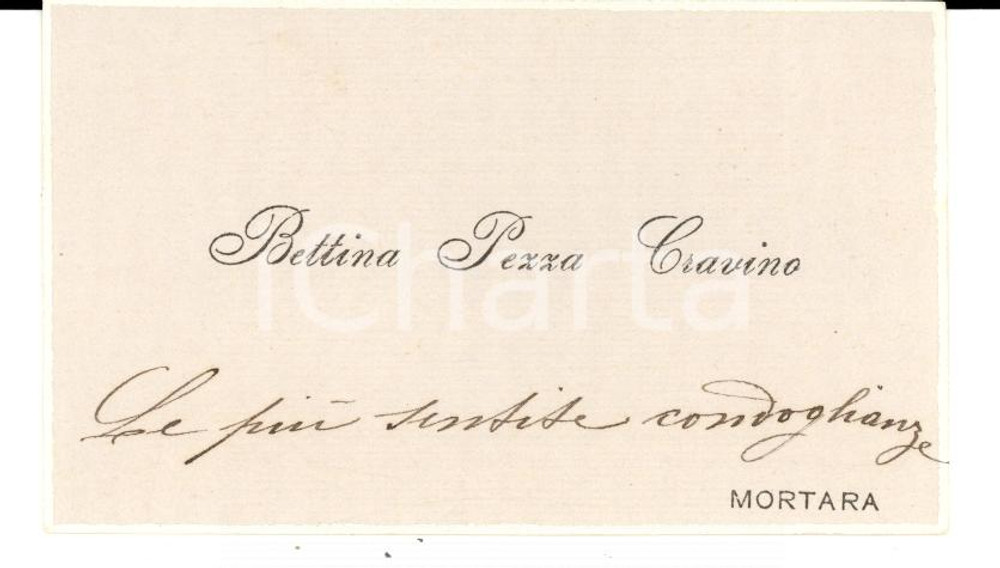 Bettina Pezza Cravino
iCharta
Le più sentite condoglianze
MORTARA